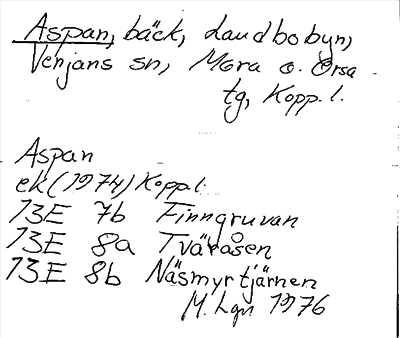 Aspan, bäck, Landbobyn,
Venjans sn, Mora o. Orsa
tg, Kopp. l.
Aspan
ek (1974) Kopp. l.
13E 7b Finngruvan
13E 8a Tväråsen
13E 8b Näsmyrtjärnen
M. Lgn 1976